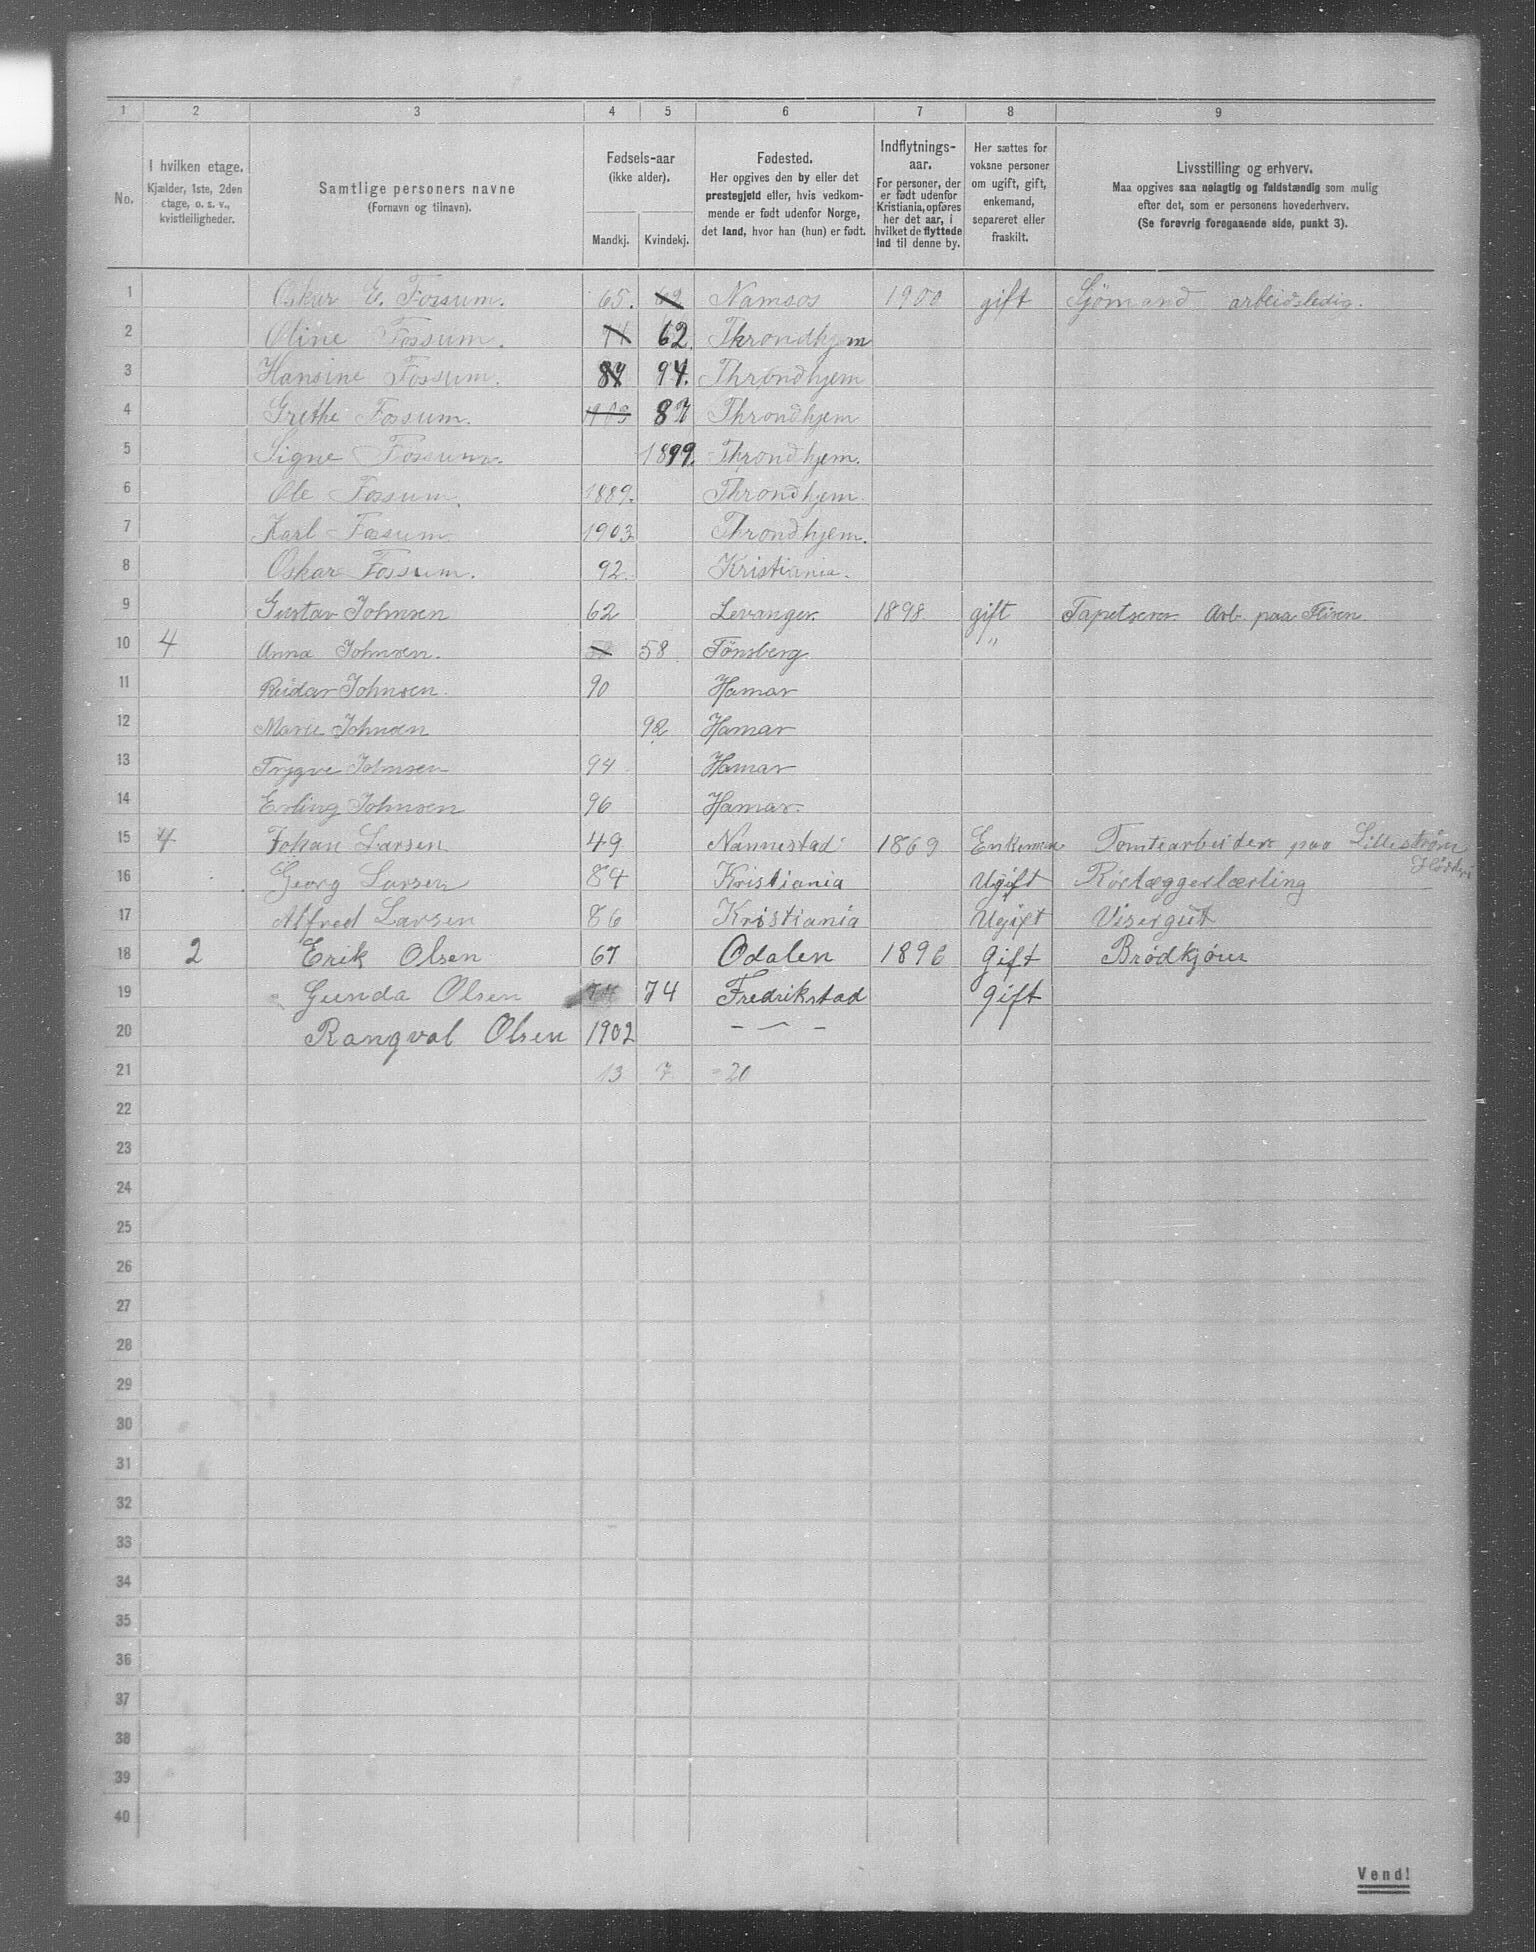 1 2 3 4 5 6 7 8 9
No.
I hvilken etage.
Kjælder, 1ste, 2den
etage, o. s. v.,
kvistleiligheder.
Samtlige personers navne
(Fornavn og tilnavn).
Fødsels-aar
(ikke alder).
Mandkj. Kvindekj.
Fødested.
Her opgives den by eller det
prestegjeld eller, hvis vedkom-
mende er født udenfor Norge,
det land, hvor han (hun) er født.
Indflytnings-
aar.
For personer, der
er født udenfor
Kristiania, opføres
her det aar, i
hvilket de flyttede
ind til denne by.
Her sættes for
voksne personer
om ugift, gift,
enkemand,
separeret eller
fraskilt.
Livsstilling og erhverv.
Maa opgives saa nøiagtig og fuldstændig som mulig
efter det, som er personens hovederhverv.
(Se forøvrig foregaaende side, punkt 3).
1 Oskar E. Fossum. 65. 62 Namsos 1900 gift Sjømand arbeidsledig.
2 Oline Fossum. 74 62. Throndhjem
3 Hansine Fossum. 87 94. Throndhjem
4 Grethe Fossum. 1903 87 Throndhjem
5 Signe Fossum. 1899. Throndhjem.
6 Ole Fossum. 1889. Throndhjem.
7 Karl Fossum 1903 Throndhjem.
8 Oskar Fossum. 92. Kristiania.
9 Gustav Johnsen 62 Levanger. 1898. gift Tapetserer Arb. paa Flisen.
10 4 Anna Johnsen. 58 58 Tönsberg. "
11 Reidar Johnsen. 90 Hamar
12 Marie Johnsen 92 Hamar
13 Trygve Johnsen 94 Hamar
14 Erling Johnsen 96 Hamar.
15 4 Johan Larsen 49 Nannestad 1869 Enkemand Tomtearbeider paa Lillestrøm
16 Georg Larsen 84 Kristiania Ugift Rörlæggerlærling
17 Alfred Larsen 86 Kristiania Ugift Visergut
18 2 Erik Olsen 67 Odalen 1896 gift Brødkjører
19 Gunda Olsen 74 74 Fredrikstad gift
20 Rangval Olsen 1902 - — -
21 13 7 = 20
22
23
24
25
26
27
28
29
30
31
32
33
34
35
36
37
38
39
40
Vend!